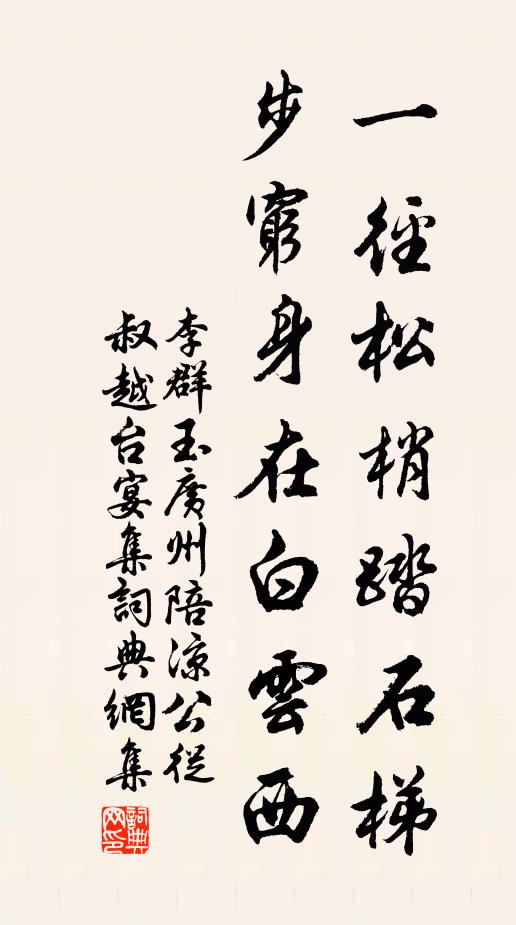 一徑松梢踏石梯
步窮身在白雲西
李群玉廣州陪涼公從
叔越台宴集詞典網集
詞典
网印